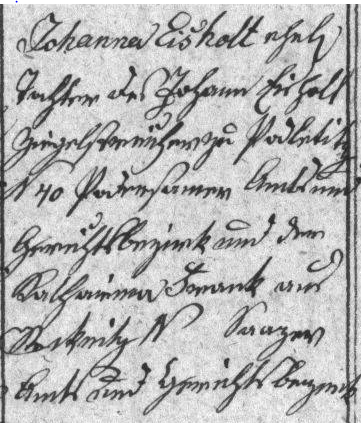 Johanna Eisholt ehel
Tochter des Johann Eisholt
Ziegelstreicher zu Podletitz
N 40 Podersamer Amts und
Gerichtsbezirk und der
Katharina Frank aus
N Saazer
Amts und Gerichtsbezirk